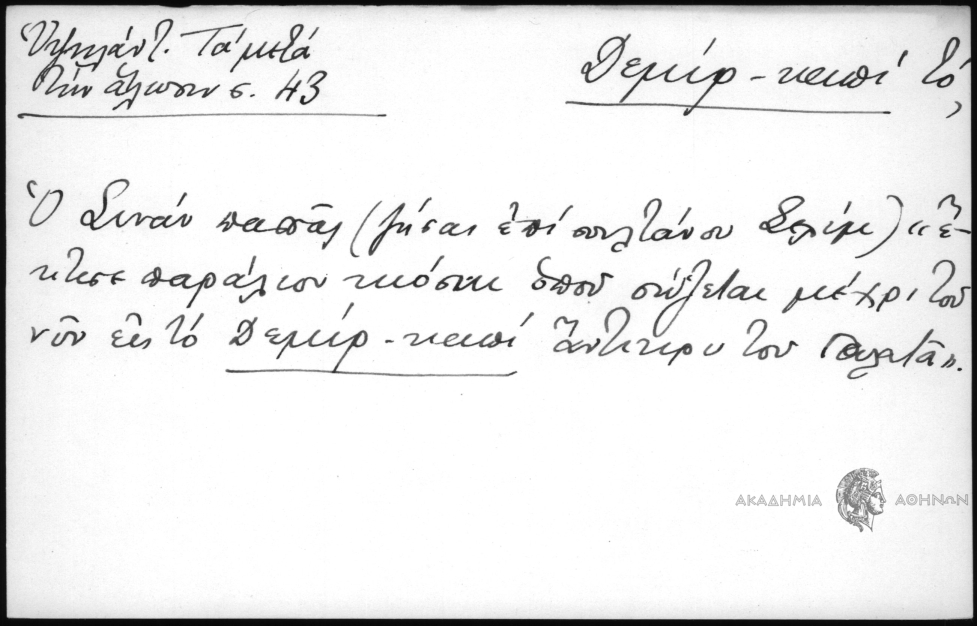 Ὑψηλάντ. Τά μετά
τήν ἅλωσιν σ. 43
Δεμίρ-καπί τό,
Ὁ Σινάν πασᾶς (ζήσας ἐπί σουλτάνου Σελίμ) «ἔ-
κτισε παράλιον κιόσκι ὅπου σώζεται μέχρι τοῦ
νῦν εἰς τό Δεμίρ-καπί ἄντικρυ τοῦ Γαλατᾶ».
ΑΚΑΔΗΜΙΑ ΑΘΗΝΩΝ